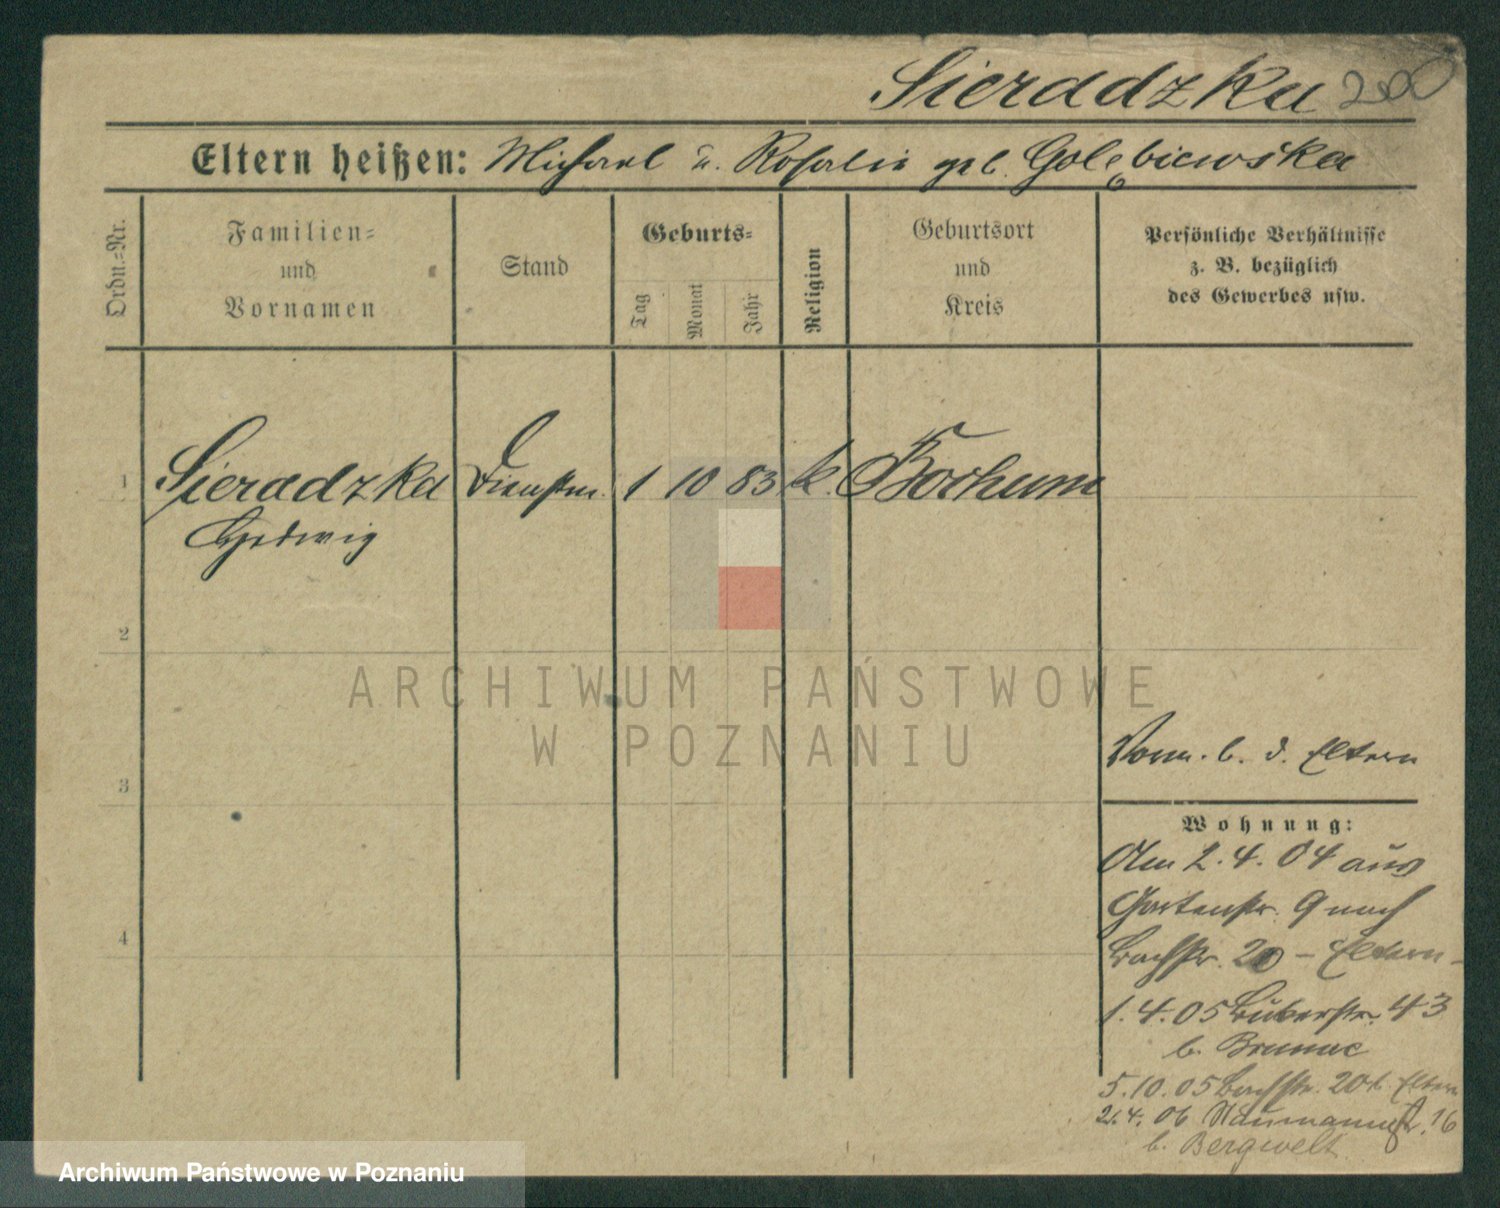 Sieradzka 200
Eltern heißen: Michael u. Rosalie geb. Golębiewska
Ordn.=Nr.
Familien=
und
Vornamen
Stand
Geburts=
Tag
Monat
Jahr
Religion
Geburtsort
und
Kreis
Persönliche Verhältnisse
z. B. bezüglich
des Gewerbes usw.
1 Sieradzka Dienstm. 1 10 83 k. Bochum
Hedwig
2
ARCHIWUM PAŃSTWOWE
W POZNANIU
3
Vorm. b. d. Eltern
Wohnung:
Am 2. 4. 04 aus
Gartenstr. 9 nach
Bachstr. 20 – Eltern –
4
1. 4. 05 43
b.
5. 10. 05 Bachstr. 20 b. Eltern
2. 4. 06 Naumannstr. 16
b. Bergwelt
Archiwum Państwowe w Poznaniu